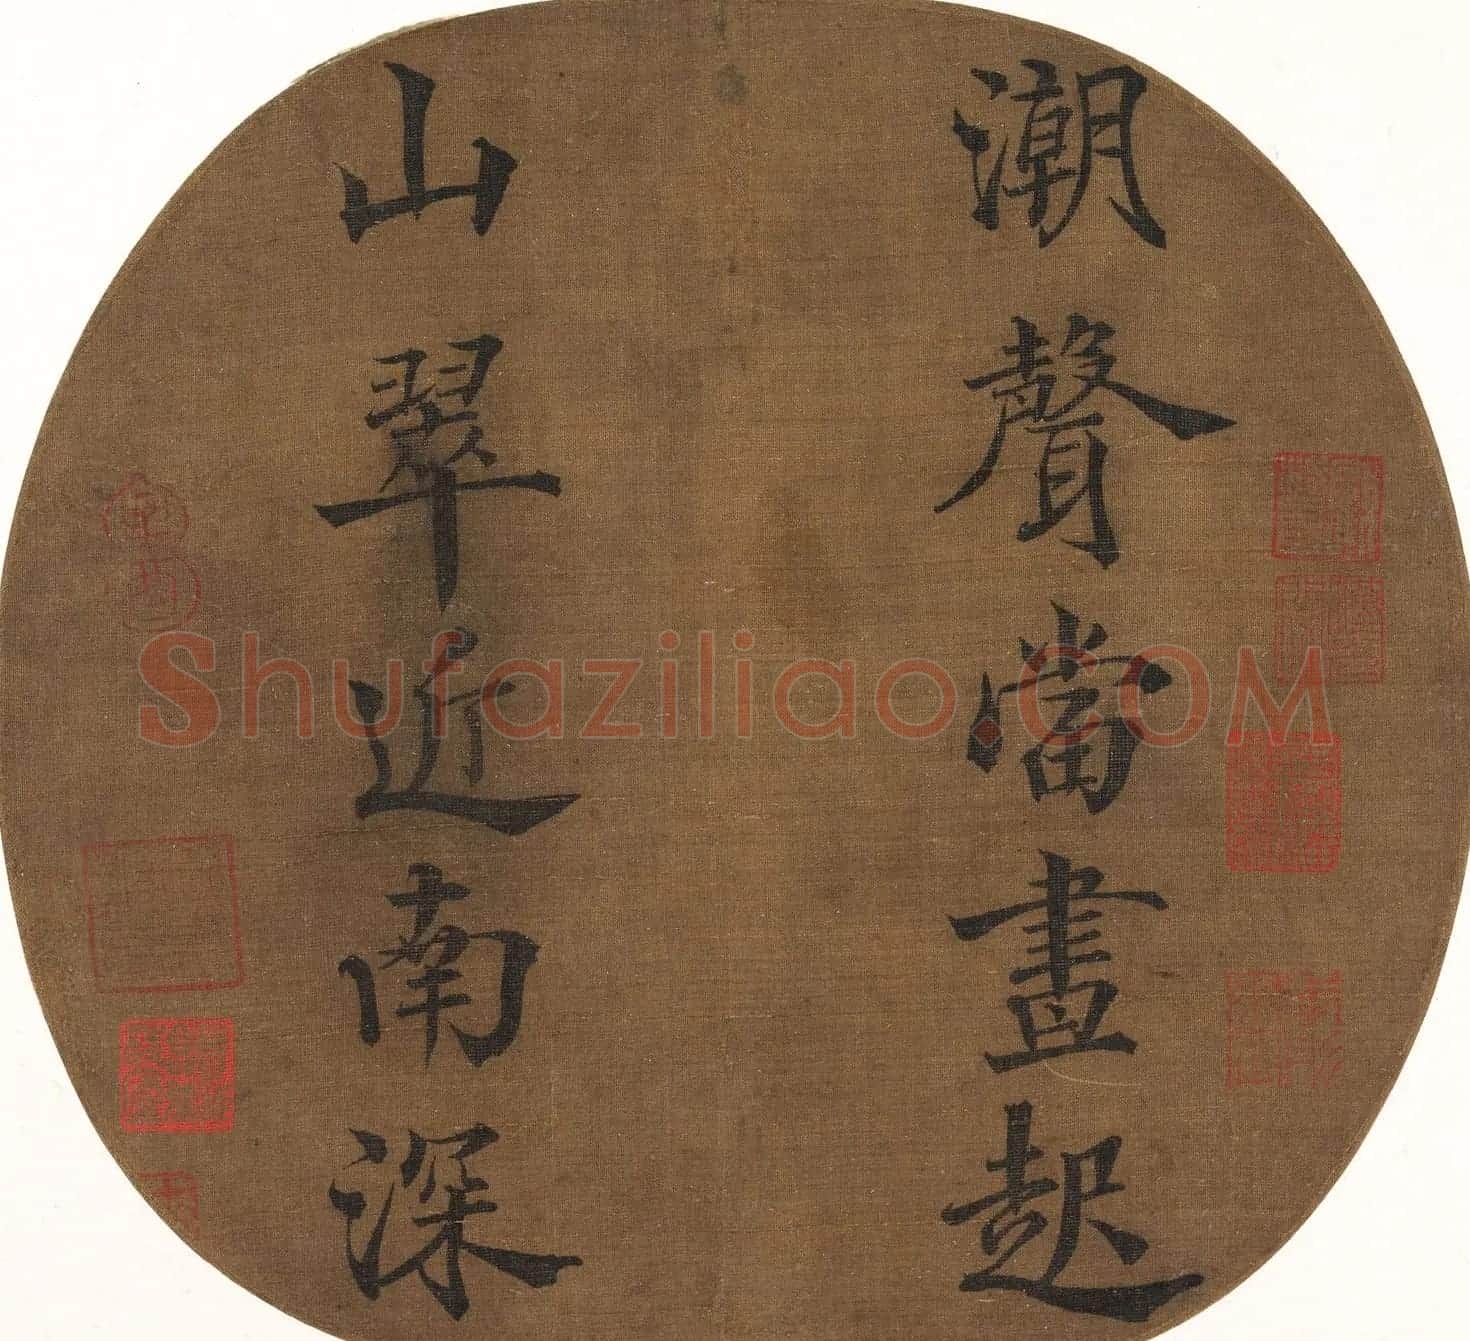 潮聲當晝起
山翠近南深
Shufaziliao.COM